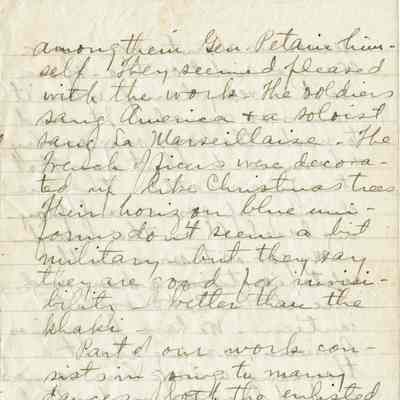 among them Gen. Petain him-
self. They seemed pleased
with the work. The soldiers
sang America & a soloist
sang La Marseillaise. The
French officers were decora-
ted up like Christmas trees
Their horizon blue uni-
forms don't seem a bit
military but they say
they are good for invisi-
bility - better than the
khaki -
Part of our work con-
sists in going to many
dances both the enlisted